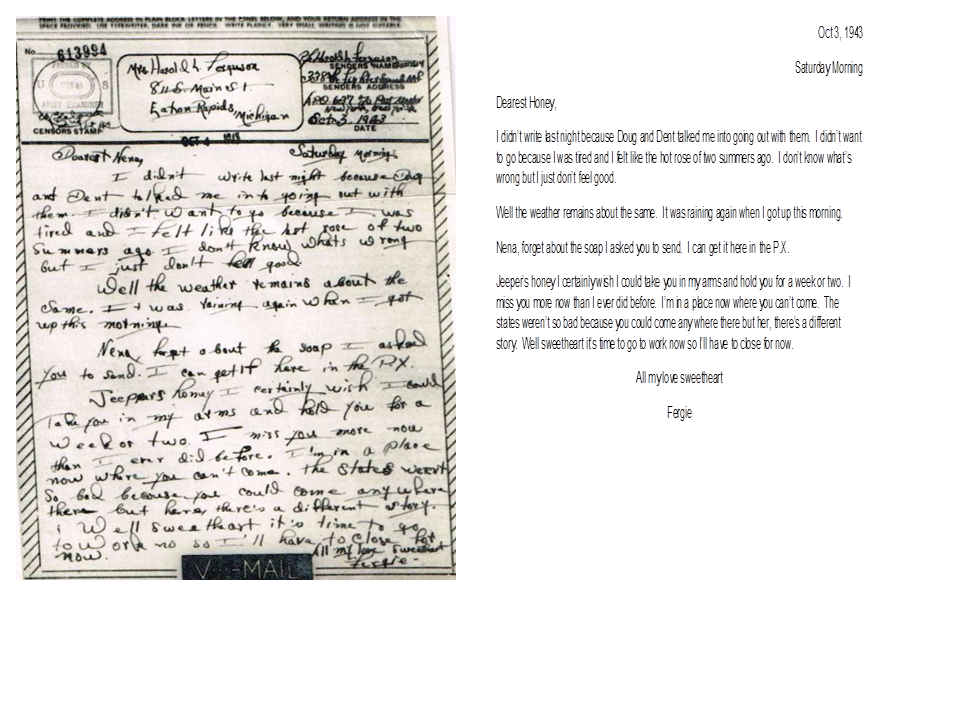 PRINT THE COMPLETE ADDRESS IN PLAIN BLOCK LETTERS IN THE PANEL BELOW, AND YOUR RETURN ADDRESS IN THE
SPACE PROVIDED. USE TYPEWRITER, DARK INK OR PENCIL. WRITE PLAINLY. VERY SMALL WRITING IS NOT SUITABLE.
No. 613994
U S
ARMY EXAMINER
CENSORS STAMP
Mrs Harold L Ferguson
811 S. Main St
Eaton Rapids,
Michigan
Harold L Ferguson
SENDERS NAME
SENDERS ADDRESS
Oct 3. 1943
DATE
OCT 4 1943
Dearest Nena, Saturday Morning
I didn't write last night because Doug
and Dent talked me into going out with
them. I didn't want to go because I was
tired and I felt like the last rose of two
summers ago. I don't know whats wrong
but I just don't feel good.
Well the weather remains about the
same. It was raining again when I got
up this morning.
Nena, forget about the soap I asked
you to send. I can get it here in the PX.
Jeepers honey I certainly wish I could
take you in my arms and hold you for a
week or two. I miss you more now
than I ever did before. I'm in a place
now where you can't come. the states weren't
so bad because you could come any where
there but here, there's a different story.
Well sweetheart it's time to go
to work no so I'll have to close for
now. All my love sweetheart
Fergie-
V···-MAIL
Oct 3, 1943
Saturday Morning
Dearest Honey,
I didn't write last night because Doug and Dent talked me into going out with them. I didn't want
to go because I was tired and I felt like the hot rose of two summers ago. I don't know what's
wrong but I just don't feel good.
Well the weather remains about the same. It was raining again when I got up this morning.
Nena, forget about the soap I asked you to send. I can get it here in the P.X.
Jeeper's honey I certainly wish I could take you in my arms and hold you for a week or two. I
miss you more now than I ever did before. I'm in a place now where you can't come. The
states weren't so bad because you could come any where there but her, there's a different
story. Well sweetheart it's time to go to work now so I'll have to close for now.
All my love sweetheart
Fergie